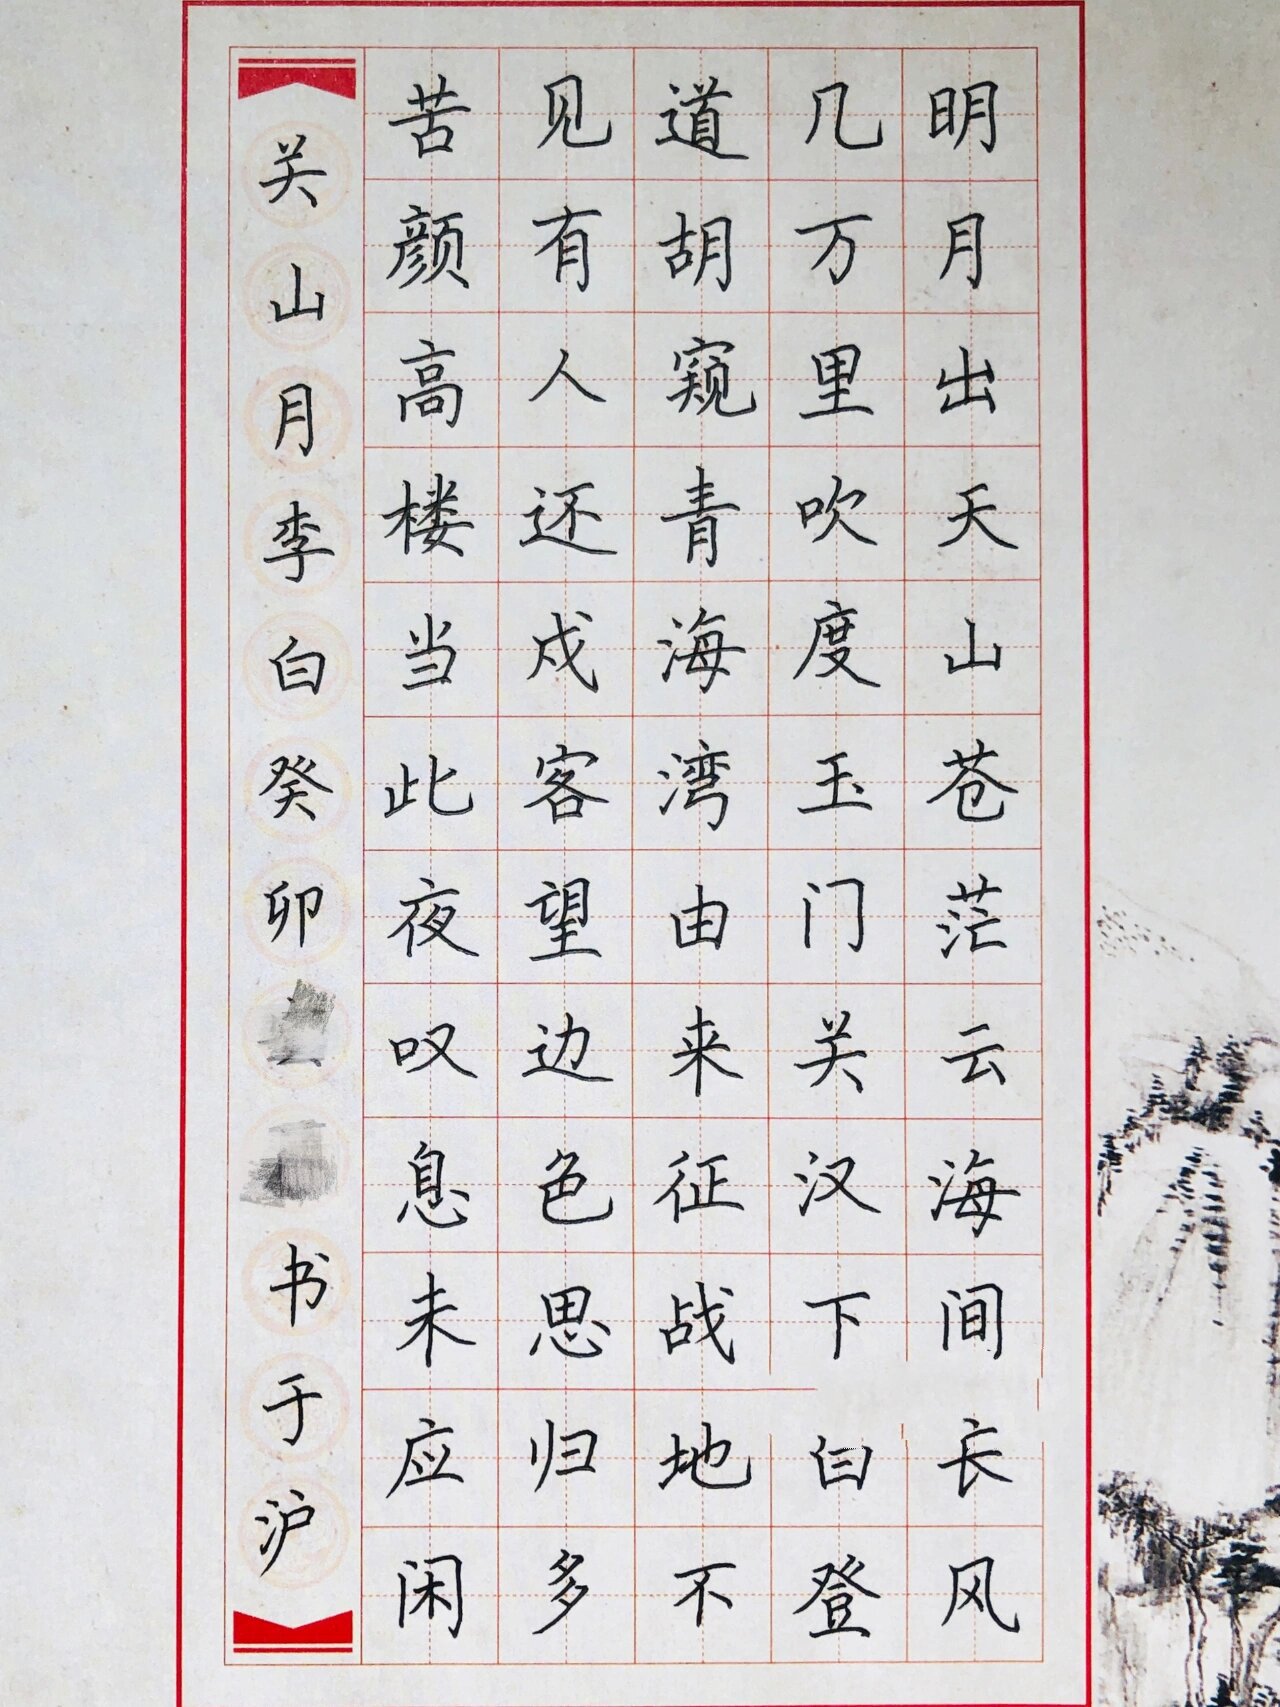 明月出天山苍茫云海间长风
几万里吹度玉门关汉下白登
道胡窥青海湾由来征战地不
见有人还戍客望边色思归多
苦颜高楼当此夜叹息未应闲
关山月李白癸卯书于沪